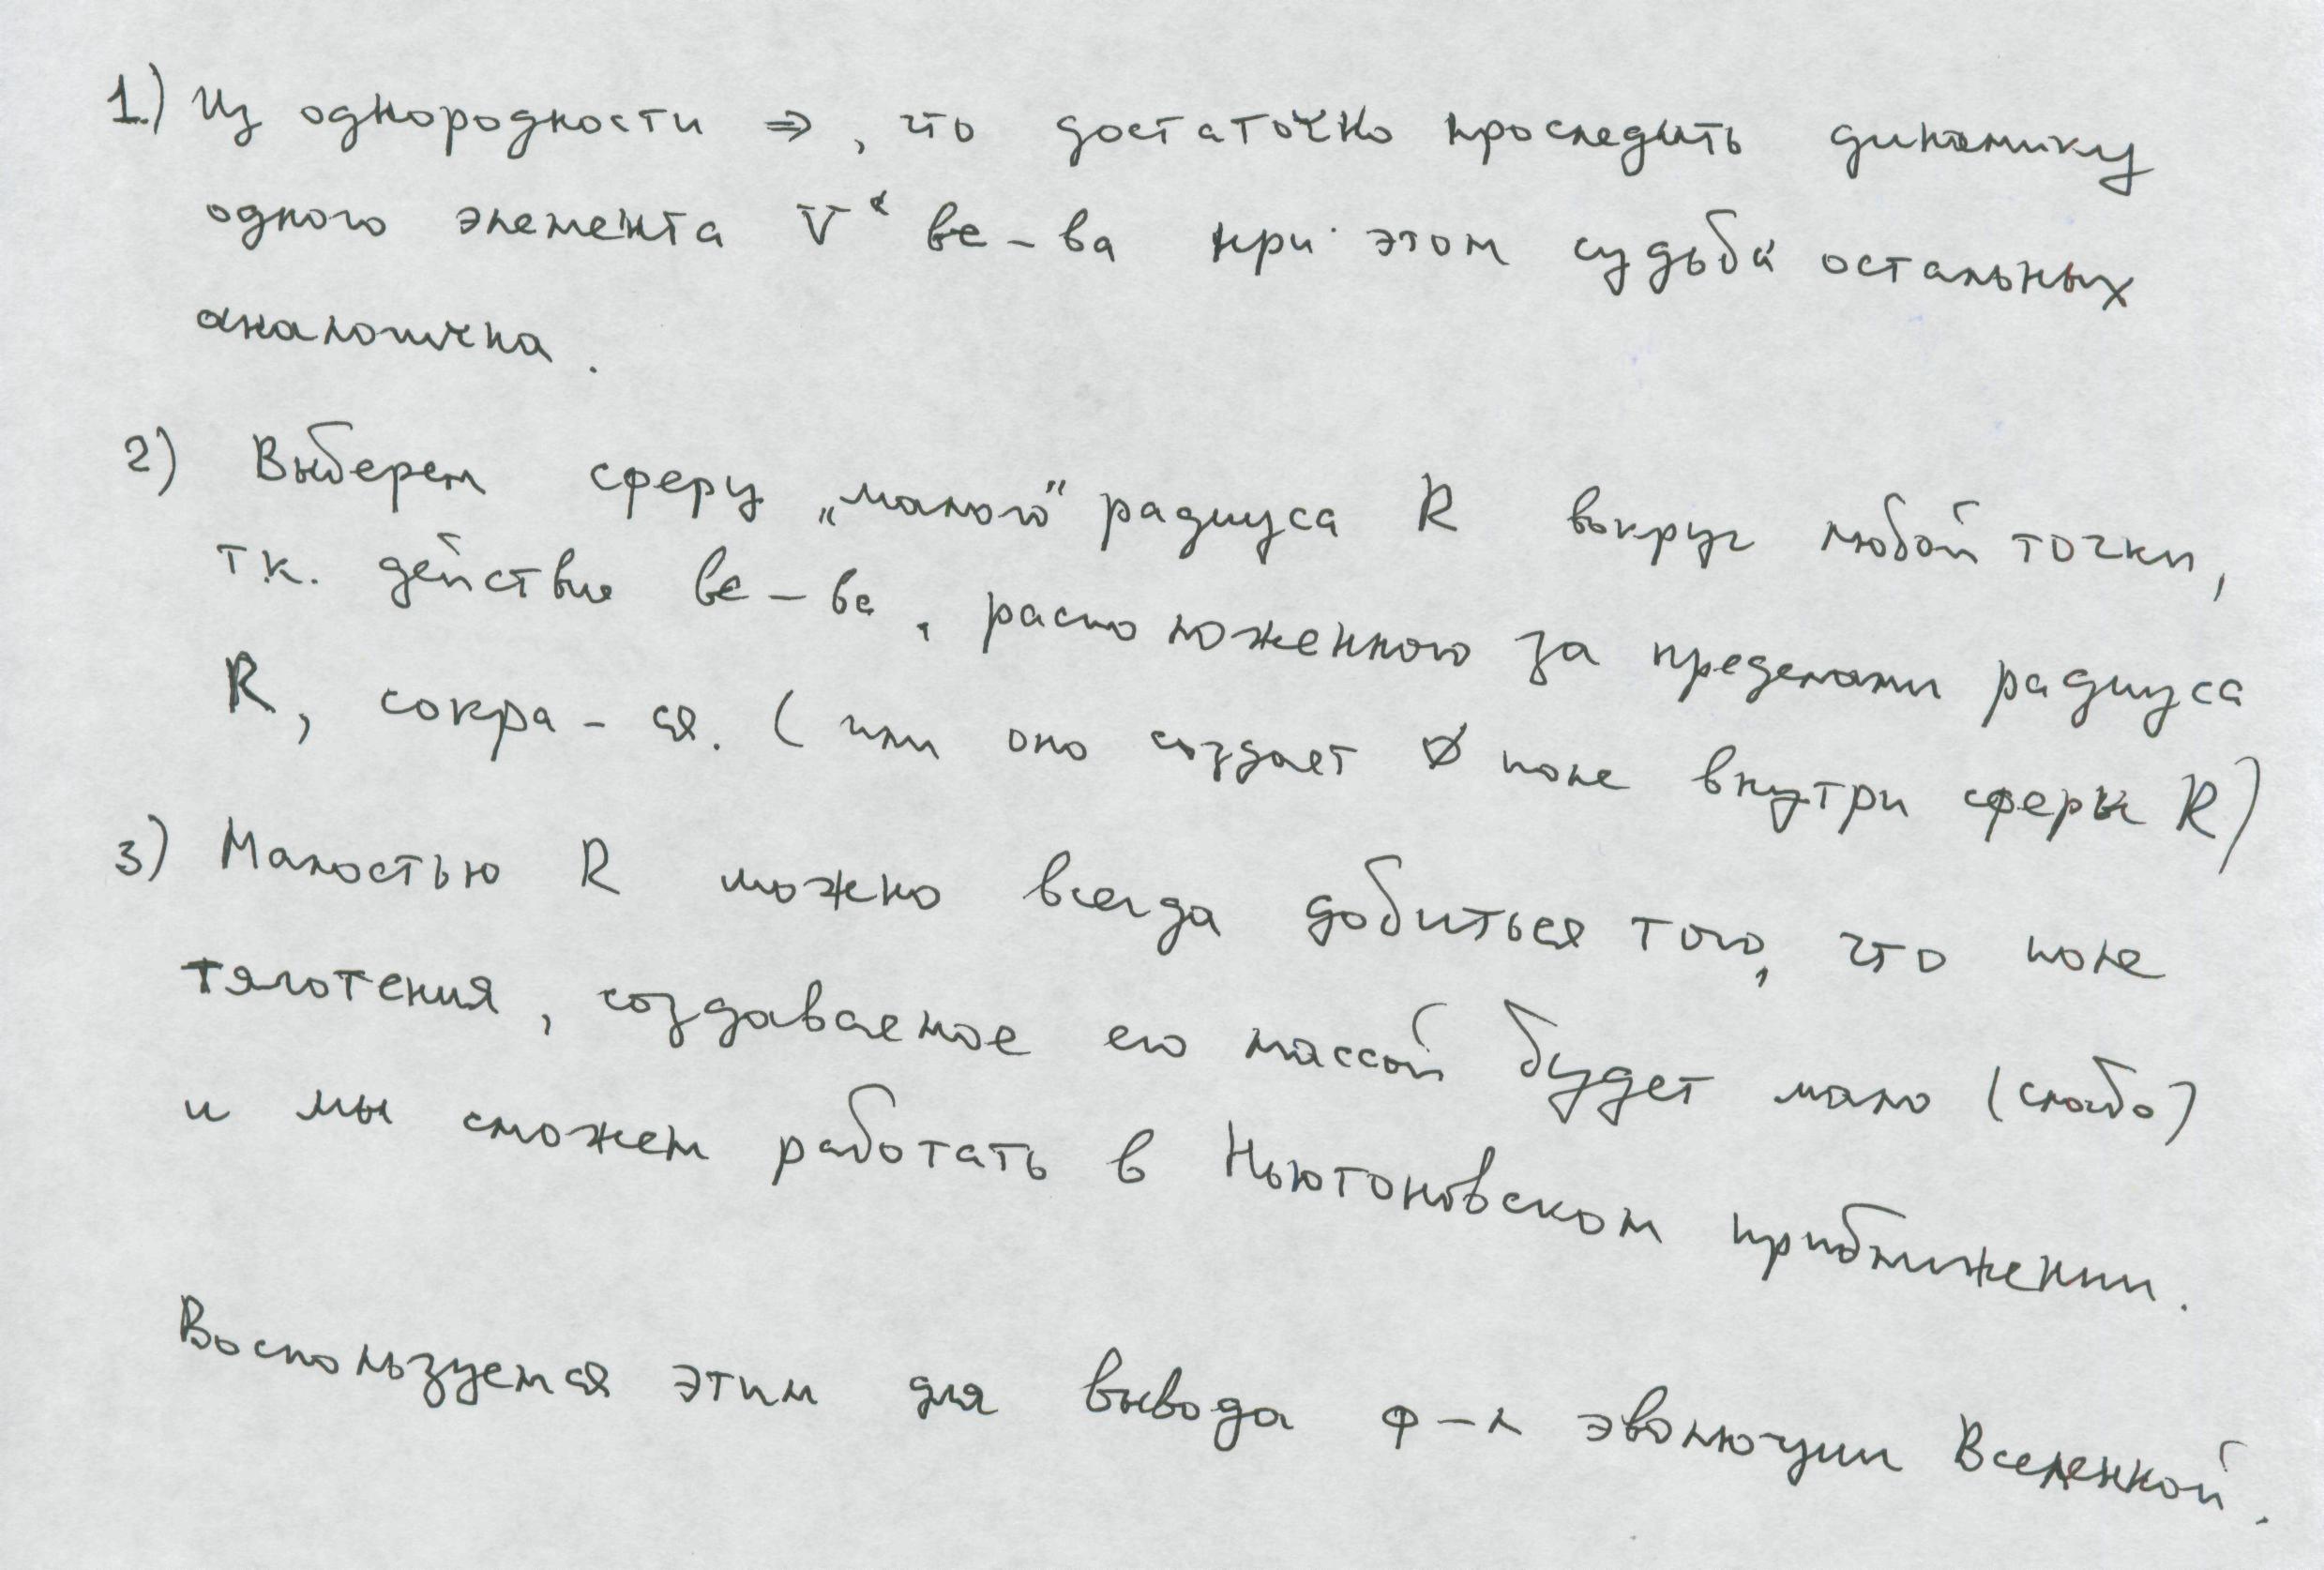 1) Из однородности ⇒, что достаточно проследить динамику
одного элемента V ве-ва при этом судьба остальных
аналогична.
2) Выберем сферу „малого" радиуса R вокруг любой точки,
т.к. действие ве-ва, расположенного за пределами радиуса
R, сокра-ся. (или оно создает ∅ поле внутри сферы R)
3) Малостью R можно всегда добиться того, что поле
тяготения, создаваемое его массой будет мало (слабо)
и мы сможем работать в Ньютоновском приближении.
Воспользуемся этим для вывода ф-л эволюции Вселенной.